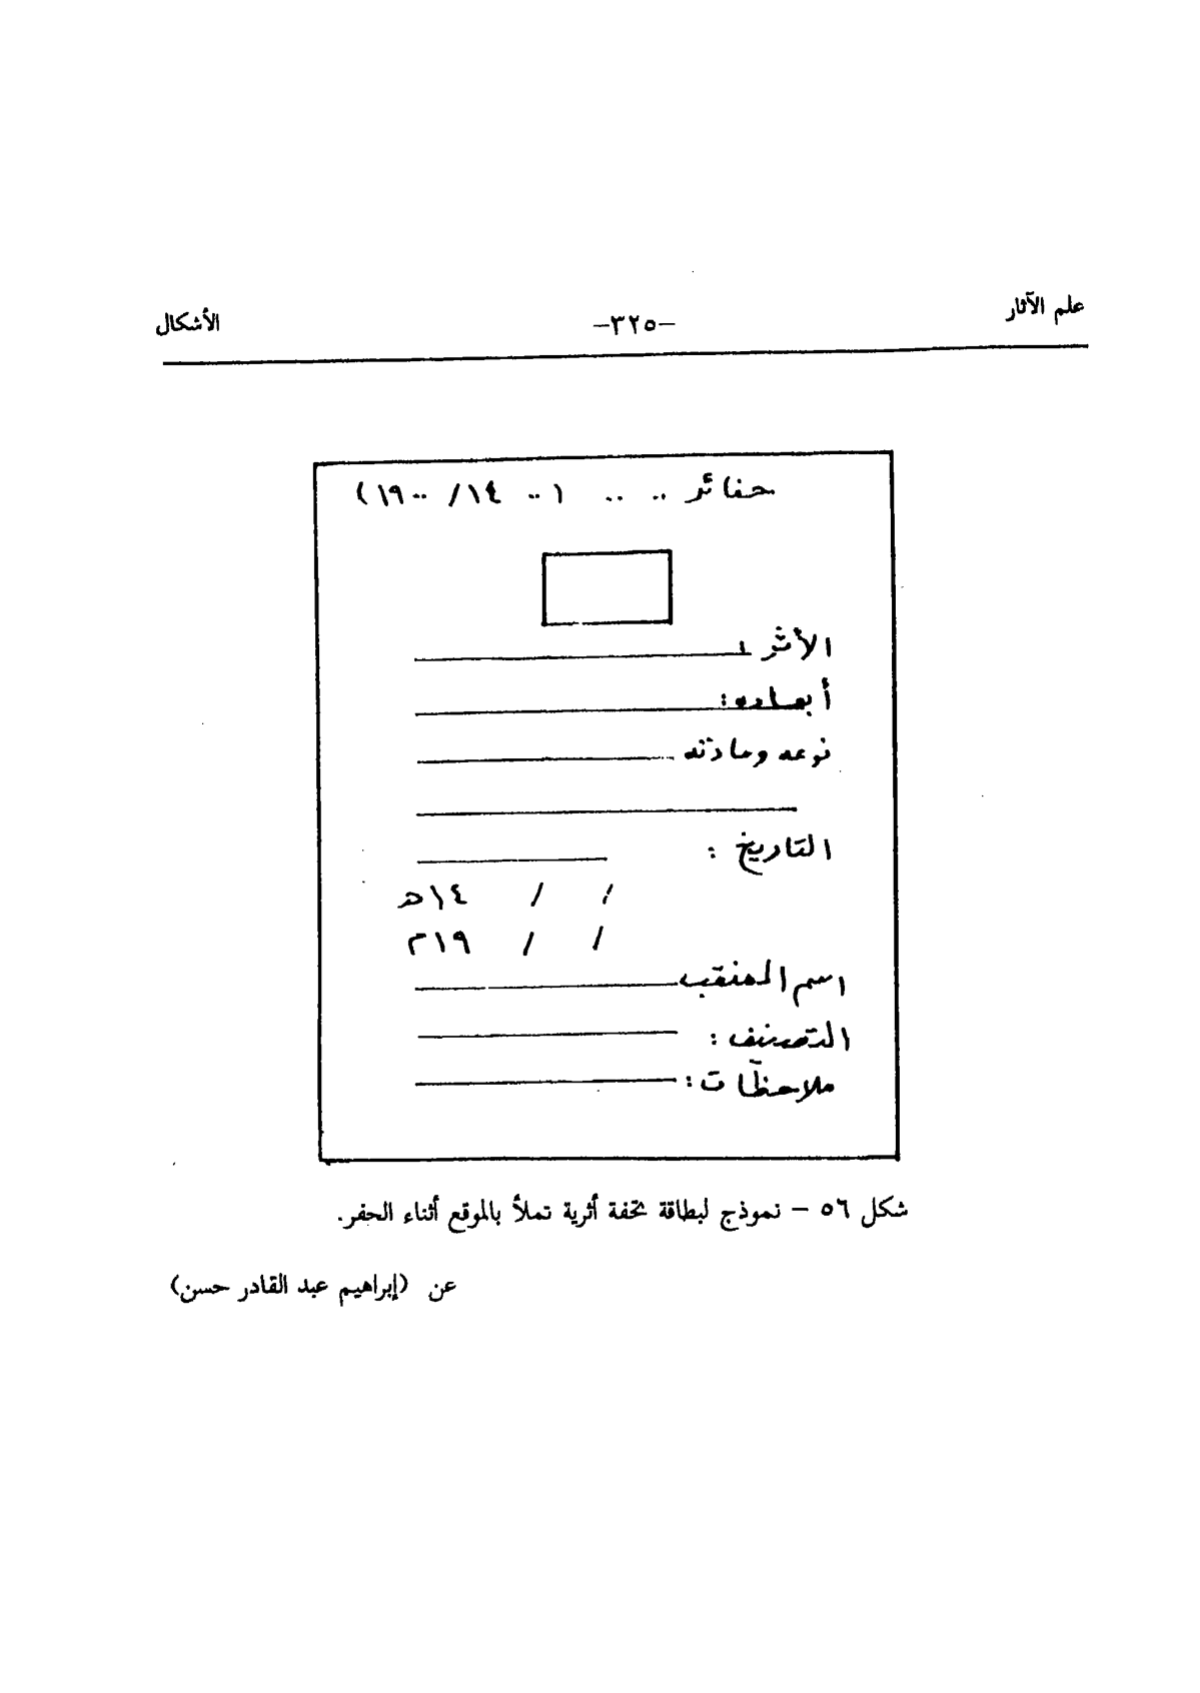 علم الآثار
-٣٢٥-
الأشكال
حفائر .. .. .. (.. ١٤/ ..١٩)
الأثر :
أبعاده :
نوعه ومادته
التاريخ :
/ / ١٤هـ
/ / ١٩م
اسم المنقب
التصنيف :
ملاحظات :
شكل ٥٦ – نموذج لبطاقة تحفة أثرية تملأ بالموقع أثناء الحفر.
عن (إبراهيم عبد القادر حسن)